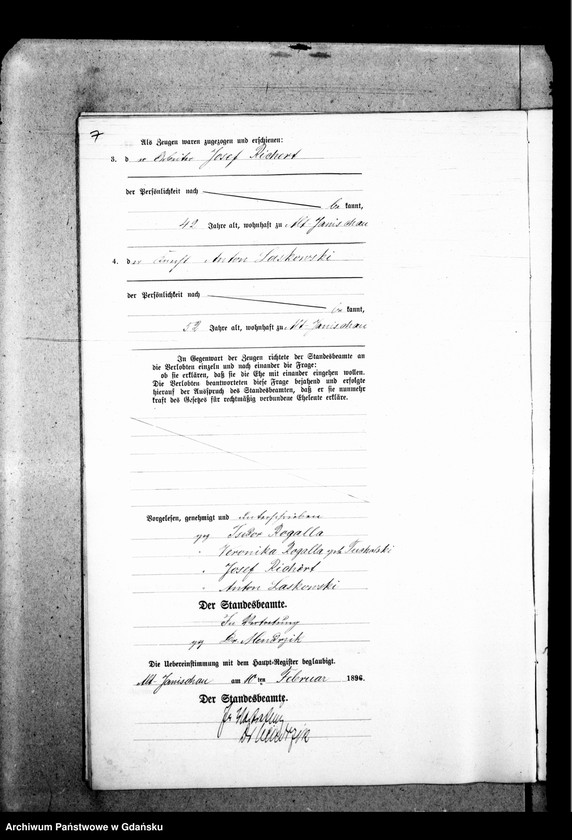 7
Als Zeugen waren zugezogen und erschienen:
3. der Arbeiter Josef Richert
der Persönlichkeit nach
be kannt,
42 Jahre alt, wohnhaft zu Alt-Janischau
4. der Anton Laskowski
der Persönlichkeit nach
be kannt,
52 Jahre alt, wohnhaft zu Alt-Janischau
In Gegenwart der Zeugen richtete der Standesbeamte an
die Verlobten einzeln und nach einander die Frage:
ob sie erklären, daß sie die Ehe mit einander eingehen wollen.
Die Verlobten beantworteten diese Frage bejahend und erfolgte
hierauf der Ausspruch des Standesbeamten, daß er sie nunmehr
kraft des Gesetzes für rechtmäßig verbundene Eheleute erkläre.
Vorgelesen, genehmigt und unterschrieben
gez Isidor Rogalla
" Veronika Rogalla geb. Tucholski
" Josef Richert
" Anton Laskowski
Der Standesbeamte.
In Vertretung
gez Dr. Mendrzik
Die Uebereinstimmung mit dem Haupt-Register beglaubigt.
Alt-Janischau am 10ten Februar 1896.
Der Standesbeamte.
In Vertretung
Dr Mendrzik
Archiwum Państwowe w Gdańsku